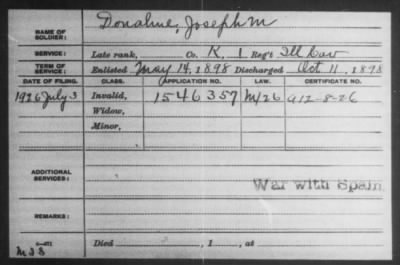 NAME OF SOLDIER: Donahue, Joseph M
SERVICE: Late rank, Co. K, 1 Reg't Ill Cav
TERM OF SERVICE: Enlisted May 14, 1898 Discharged Oct 11, 1898
DATE OF FILING. CLASS. APPLICATION NO. LAW. CERTIFICATE NO.
1926 July 3 Invalid, 1546357 M/26 A12-8-26
Widow,
Minor,
ADDITIONAL SERVICES:
War with Spain
REMARKS:
Died , 1 , at